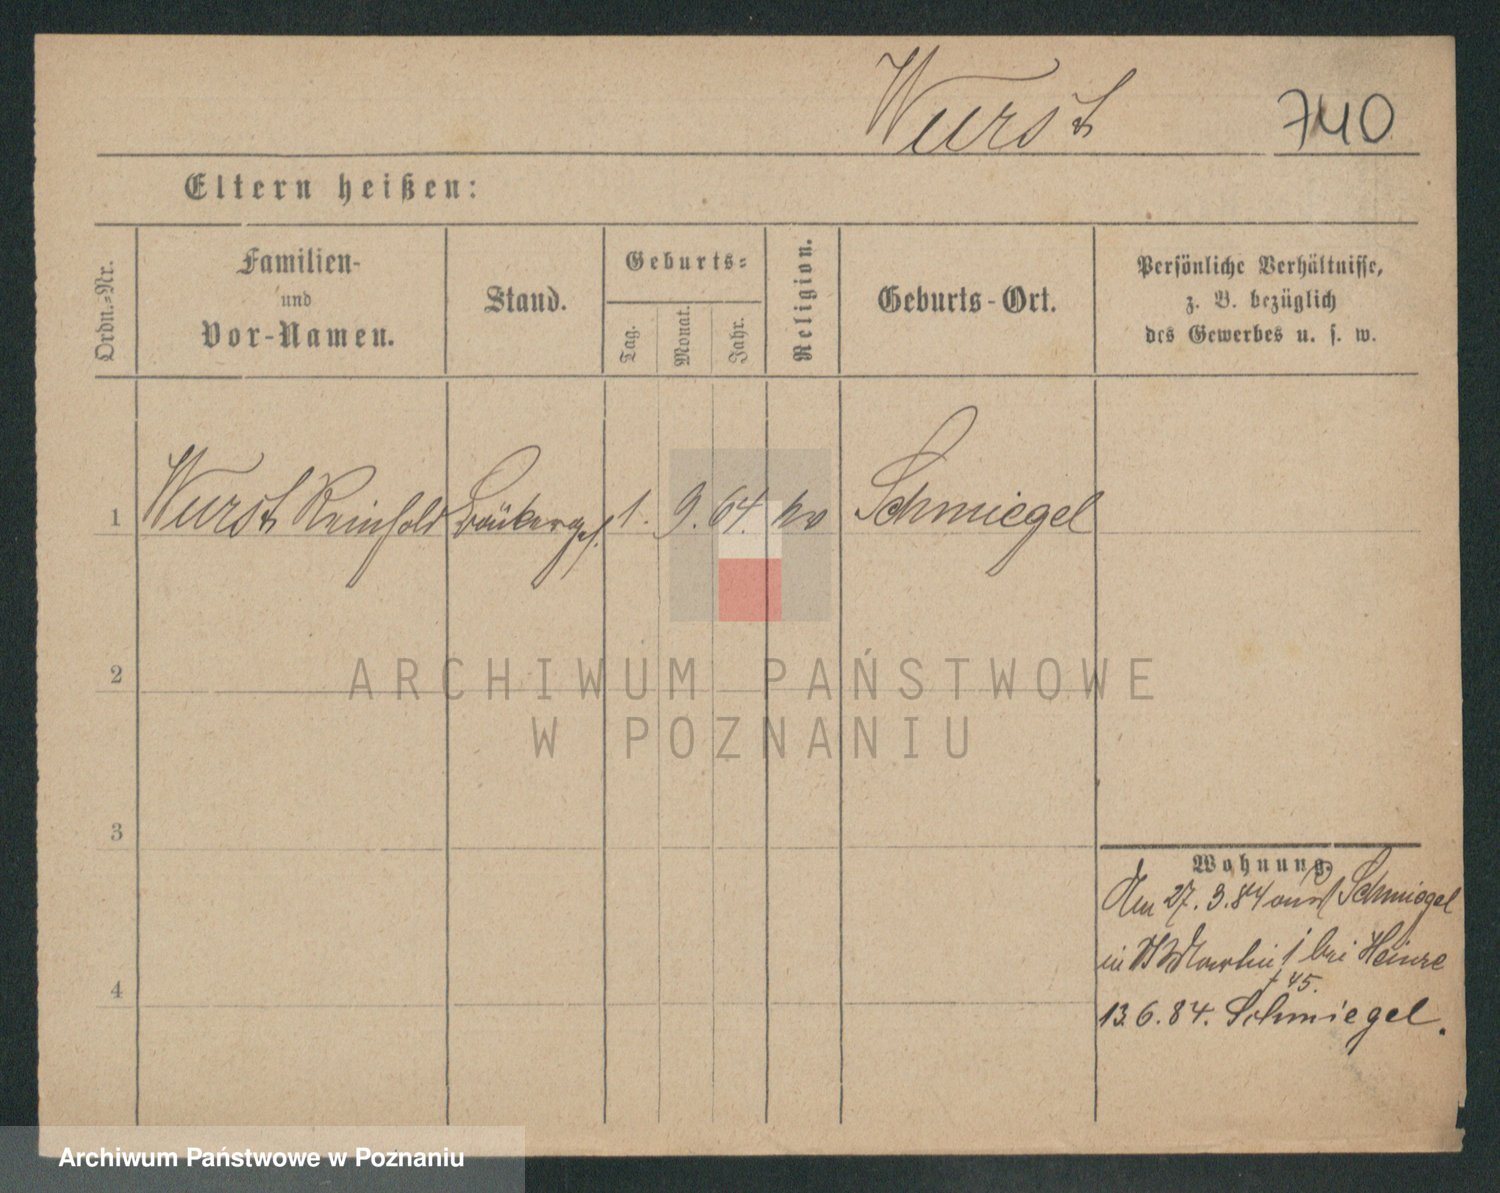 Wurst 740
Eltern heißen:
Ordn.-Nr.
Familien-
und
Vor-Namen.
Stand.
Geburts-
Tag.
Monat.
Jahr.
Religion.
Geburts-Ort.
Persönliche Verhältnisse,
z. B. bezüglich
des Gewerbes u. s. w.
1 Wurst Reinhold Bäckerges. 1. 9. 64. Schmiegel
2
3
4
Wohnung.
Am 27. 3. 84 aus Schmiegel
in St Martin bei Heinze
45.
13. 6. 84. Schmiegel.
ARCHIWUM PAŃSTWOWE
W POZNANIU
Archiwum Państwowe w Poznaniu